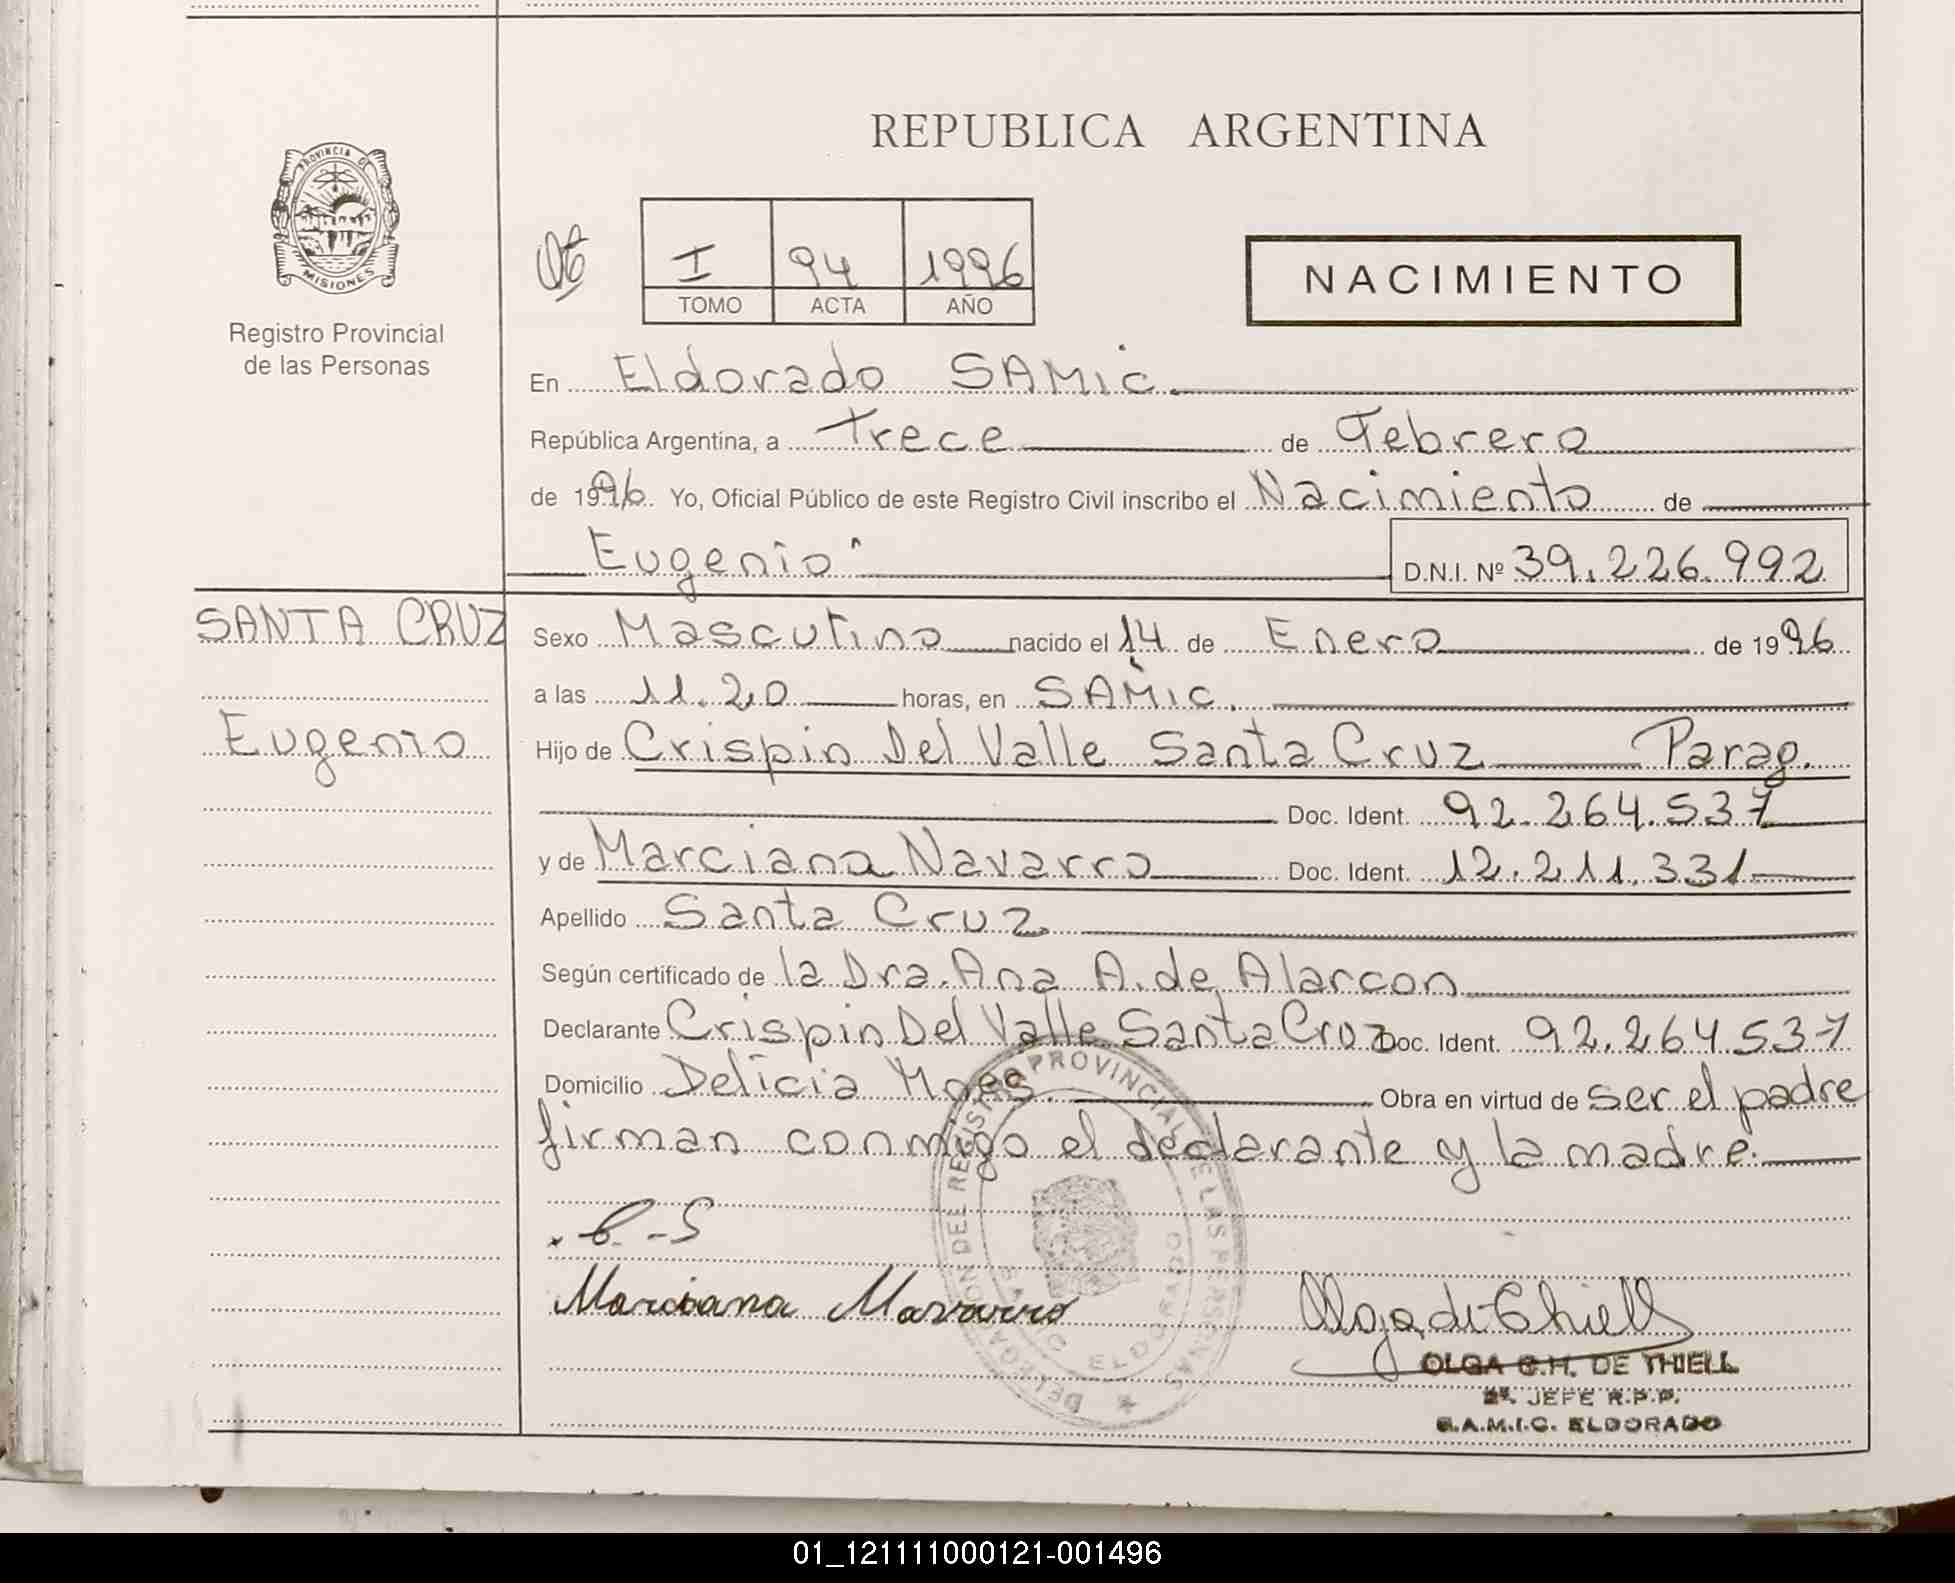 REPUBLICA ARGENTINA
PROVINCIA DE
MISIONES
Registro Provincial
de las Personas
I 94 1996
TOMO ACTA AÑO
NACIMIENTO
En Eldorado SAMic.
República Argentina, a trece de Febrero
de 1996. Yo, Oficial Público de este Registro Civil inscribo el Nacimiento de
Eugenio D.N.I. Nº 39.226.992
SANTA CRUZ
Eugenio
Sexo Masculino nacido el 14 de Enero de 1996
a las 11.20 horas, en SAMic.
Hijo de Crispin Del Valle Santa Cruz Parag.
Doc. Ident. 92.264.537
y de Marciana Navarro Doc. Ident. 12.211.331
Apellido Santa Cruz
Según certificado de la Dra. Ana A. de Alarcon
Declarante Crispin Del Valle Santa Cruz Doc. Ident. 92.264.537
Domicilio Delicia Mnes. Obra en virtud de ser el padre
firman conmigo el declarante y la madre.
C.-S
Marciana Navarro
Olga de Thiell
OLGA C.H. DE THIELL
2º JEFE R.P.P.
S.A.M.I.C. ELDORADO
DELEGACION DEL REGISTRO PROVINCIAL DE LAS PERSONAS
ELDORADO
01_121111000121-001496